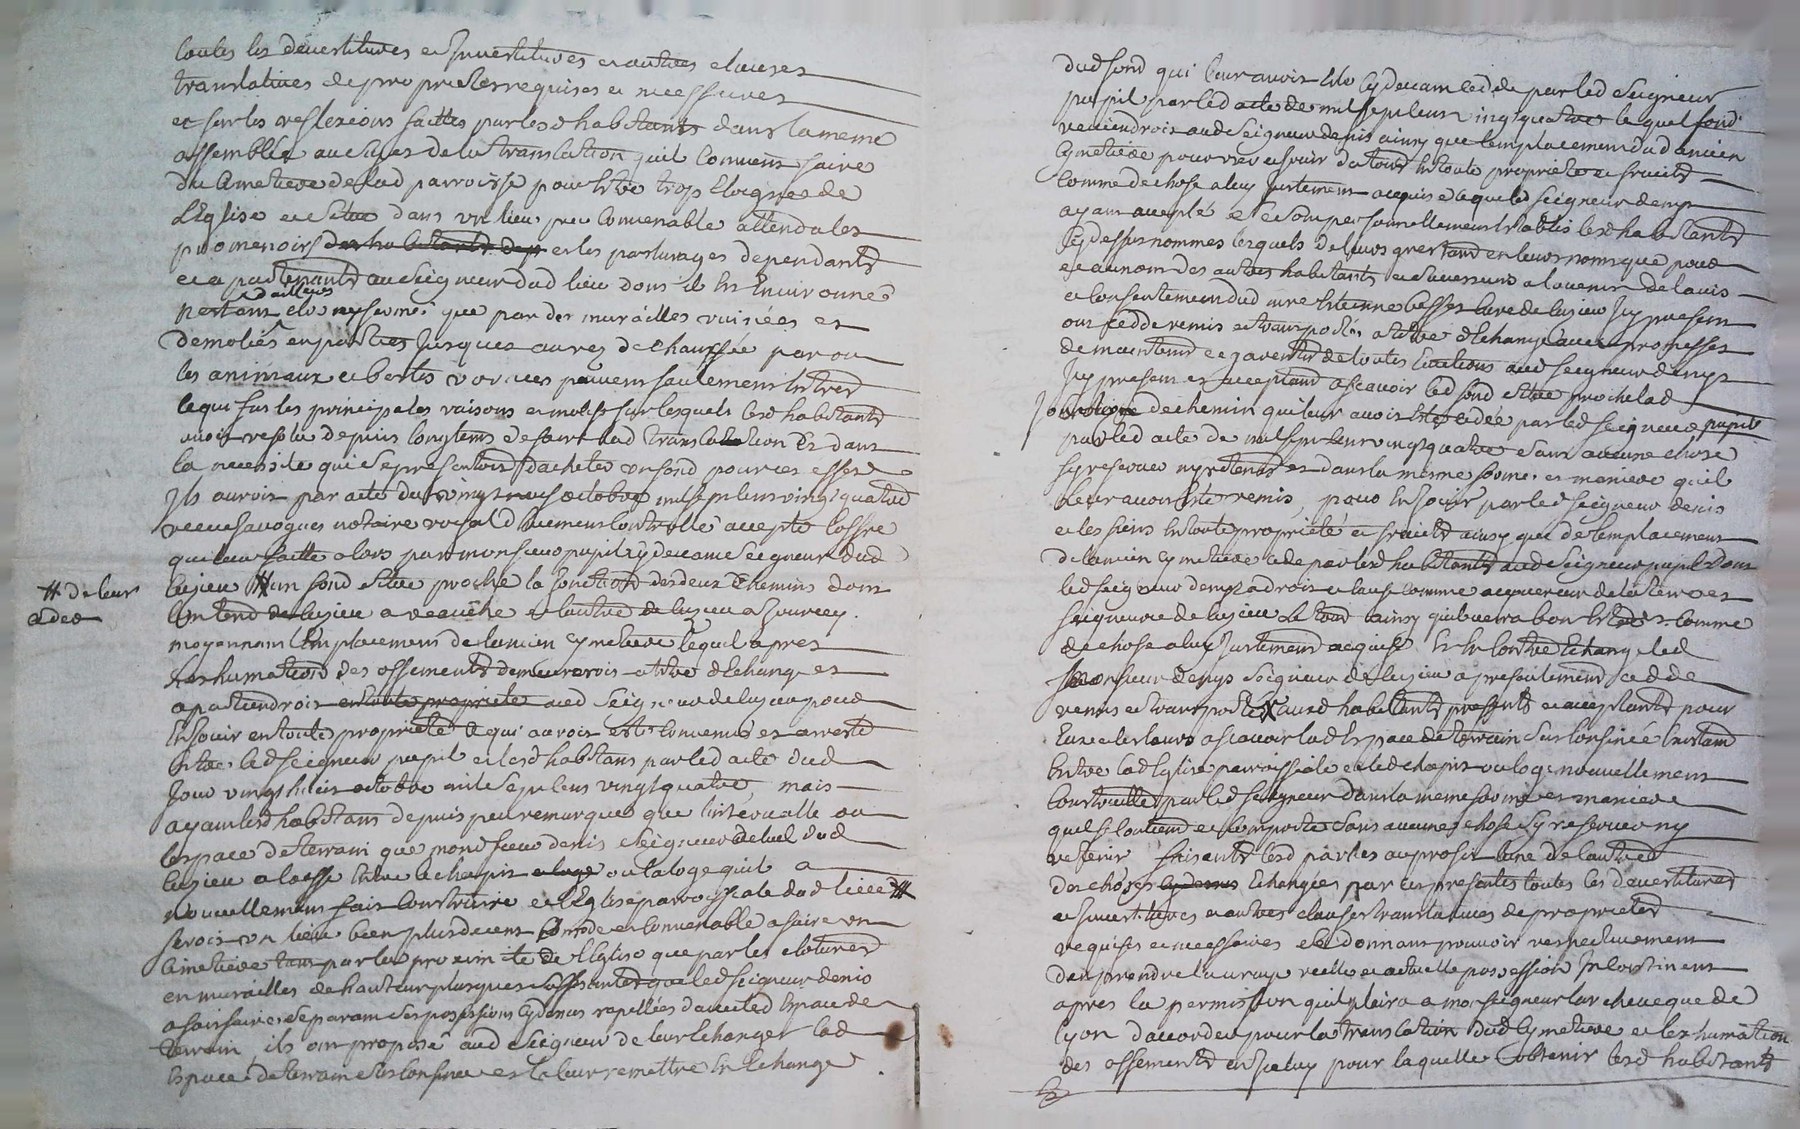 toutes les devestitures et Investitures et autres clauses
translatives de proprietes requises et necessaires
et sur les reflexions faittes par lesd habitants dans la meme
assemblée au sujet de la translation quil convient faire
du Cimetiere de lad parroisse pour être trop Eloigné de
L'Eglise et situé dans un lieu peu convenable attendu les
promenoirs et les pasturages dependants
et apartenants au seigneur dud lieu dont il Est Environné
d'ailleurs
netant clos ny fermé que par des murailles ruinées et
demolies en parties Jusques au rez de chaussée par ou
les animaux et bestes voraces peuvent facilement Entrer
ce qui fut les principales raisons et motifs sur lesquels lesd habitants
avoit resolu depuis longtems de faire lad translation Et dans
la necessité qui se presentoit d'acheter un fond pour ces effet
Ils auroit par acte du vingt neuf octobre mil sept cens vingt quatre
receu notaire royal duement controllé accepté l'offre
qui leur faitte alors par monsieur pupil cy devant seigneur dud
# de leur
ceder
Lusieu # un fond situé proche la Jonction des deux Chemins dont
l'un tend de Lusieu a et l'autre de Lusieu a
moyennant l'Emplacement de l'ancien cymetiere lequel apres
l'exhumation des ossements demeureroit a titre d'Echange et
apartiendroit en toute proprieté aud Seigneur de Lusieu pour
En Jouir en toute proprieté ce qui auroit eté convenu et arreté
Entre led seigneur pupil et lesd habitans par led acte dud
Jour vingt octobre mil sept cens vingt quatre, mais
ayant lesd habitans depuis peu remarqué que l'intervalle ou
l'espace de terrain que monsieur denis seigneur dud
Lusieu a laissé Entre le chapit ou la loge quil a
nouvellement fait construire et l'Eglise parroissiale dud lieu #
seroit un lieu bien plus decent comode et convenable a faire un
Cimetiere tant par la proximité de l'Eglise que par les clotures
en murailles de hauteur plus que suffisantes que led seigneur denis
a fait faire, separant ses possessions cy dessus rapellées d'avec led Espace de
terrain, ils ont proposé aud seigneur de leur Echanger led
Espace de terrain sus confiné et le leur remettre En Echange
dud fond qui leur avoit été cy devant cedé par led Seigneur
pupil par led acte de mil sept cens vingt quatre lequel fond
reviendroit aud seigneur denis ainsy que l'emplacement dud ancien
cymetiere pour user et jouir du tout En toute proprieté et fruits
comme de chose a luy Justement acquise a quoy led seigneur denys
ayant accepté se sont personnellement Etablis lesd habitants
cy dessus nommes lesquels de leurs gres tant en leurs noms que pour
et au nom des autres habitants et successeurs a l'avenir de l'avis
et consentement dud mre Etienne Besson curé de Lusieu Icy present
ont cedé remis et transporté, a titre d'Echange avec promesses
de maintenir et garentir de toutes Evictions aud seigneur denys
Icy present et acceptant asçavoir led fond situé proche lad
Jonction de chemin qui leur avoit été cedée par led seigneur pupil
par led acte de mil sept cens vingt quatre sans aucune chose
sy reserver ny retenir et dans la meme forme et maniere quil
leur avoit été remis, pour En Jouir par led seigneur denis
et les siens En toute proprieté et fruits ainsy que de l'emplacement
de l'ancien cymetiere cedé par lesd habitants aud seigneur pupil dont
led seigneur denys a droit et cause comme acquereur de la terre et
seigneurie de Lusieu le tout ainsy quil verra bon Etre, comme
de chose a luy Justement acquise Et En contre Echange led
sr monsieur denys seigneur de Lusieu a presentement cedde
remis et transporté aux d habitants presents et acceptants pour
Eux et les leurs asçavoir lad Espace de terrain sus confinée Existant
Entre lad Eglise parroissiale et led chapit ou loge nouvellement
construitte par led seigneur dans la meme forme et maniere
quelle contient et comporte sans aucune chose sy reserver ny
retenir faisants lesd parties au profit l'une de l'autre
des choses Echangées par ces presentes toutes les devestitures
et Investitures et autres clauses translatives de proprietes
requises et necessaires et se donnant pouvoir respectivement
d'en prendre la vraye reelle et actuelle possession Incontinent
apres la permission quil plaira a monseigneur l'archeveque de
Lyon d'accorder pour la translation dud Cymetiere et l'exhumation
des ossements en Iceluy pour laquelle obtenir lesd habitants